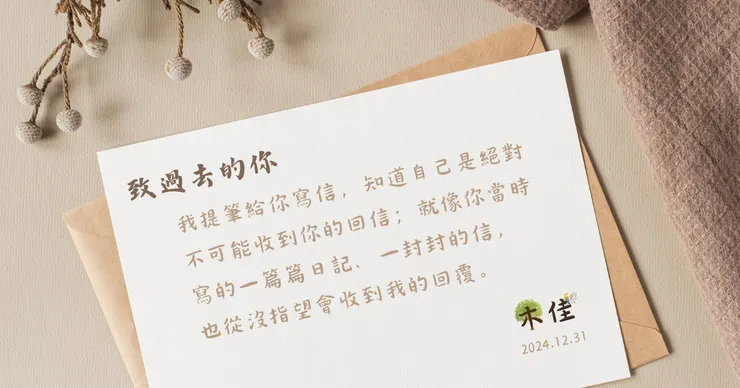 致過去的你
我提筆給你寫信，知道自己是絕對
不可能收到你的回信；就像你當時
寫的一篇篇日記、一封封的信，
也從沒指望會收到我的回覆。
木佳
2024.12.31